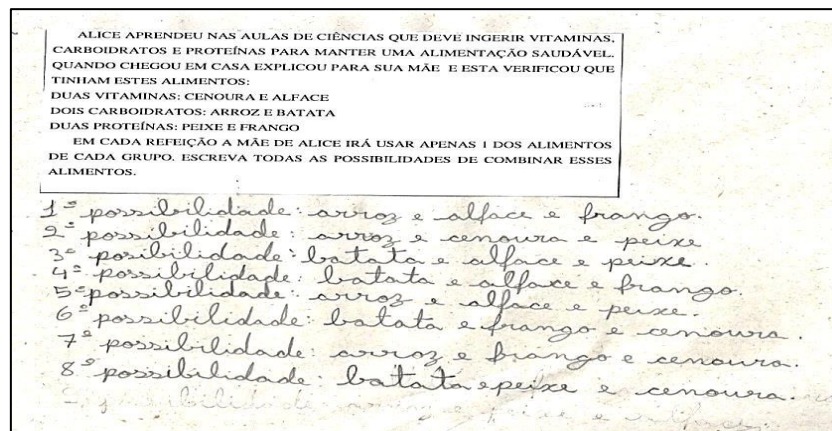 ALICE APRENDEU NAS AULAS DE CIÊNCIAS QUE DEVE INGERIR VITAMINAS,
CARBOIDRATOS E PROTEÍNAS PARA MANTER UMA ALIMENTAÇÃO SAUDÁVEL.
QUANDO CHEGOU EM CASA EXPLICOU PARA SUA MÃE E ESTA VERIFICOU QUE
TINHAM ESTES ALIMENTOS:
DUAS VITAMINAS: CENOURA E ALFACE
DOIS CARBOIDRATOS: ARROZ E BATATA
DUAS PROTEÍNAS: PEIXE E FRANGO
EM CADA REFEIÇÃO A MÃE DE ALICE IRÁ USAR APENAS 1 DOS ALIMENTOS
DE CADA GRUPO. ESCREVA TODAS AS POSSIBILIDADES DE COMBINAR ESSES
ALIMENTOS.
1ª possibilidade: arroz e alface e frango.
2ª possibilidade: arroz e cenoura e peixe
3ª posibilidade: batata e alface e peixe.
4ª possibilidade: batata e alface e frango.
5ª possibilidade: arroz e alface e peixe.
6ª possibilidade: batata e frango e cenoura.
7ª possibilidade: arroz e frango e cenoura.
8ª possibilidade: batata e peixe e cenoura.